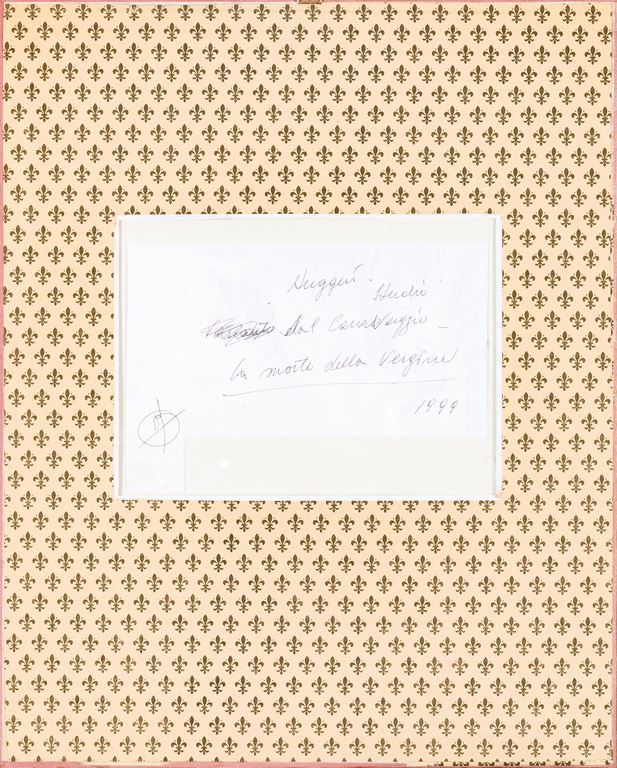 Ruggeri.
Studio
dal Caravaggio -
La morte della Vergine
1999